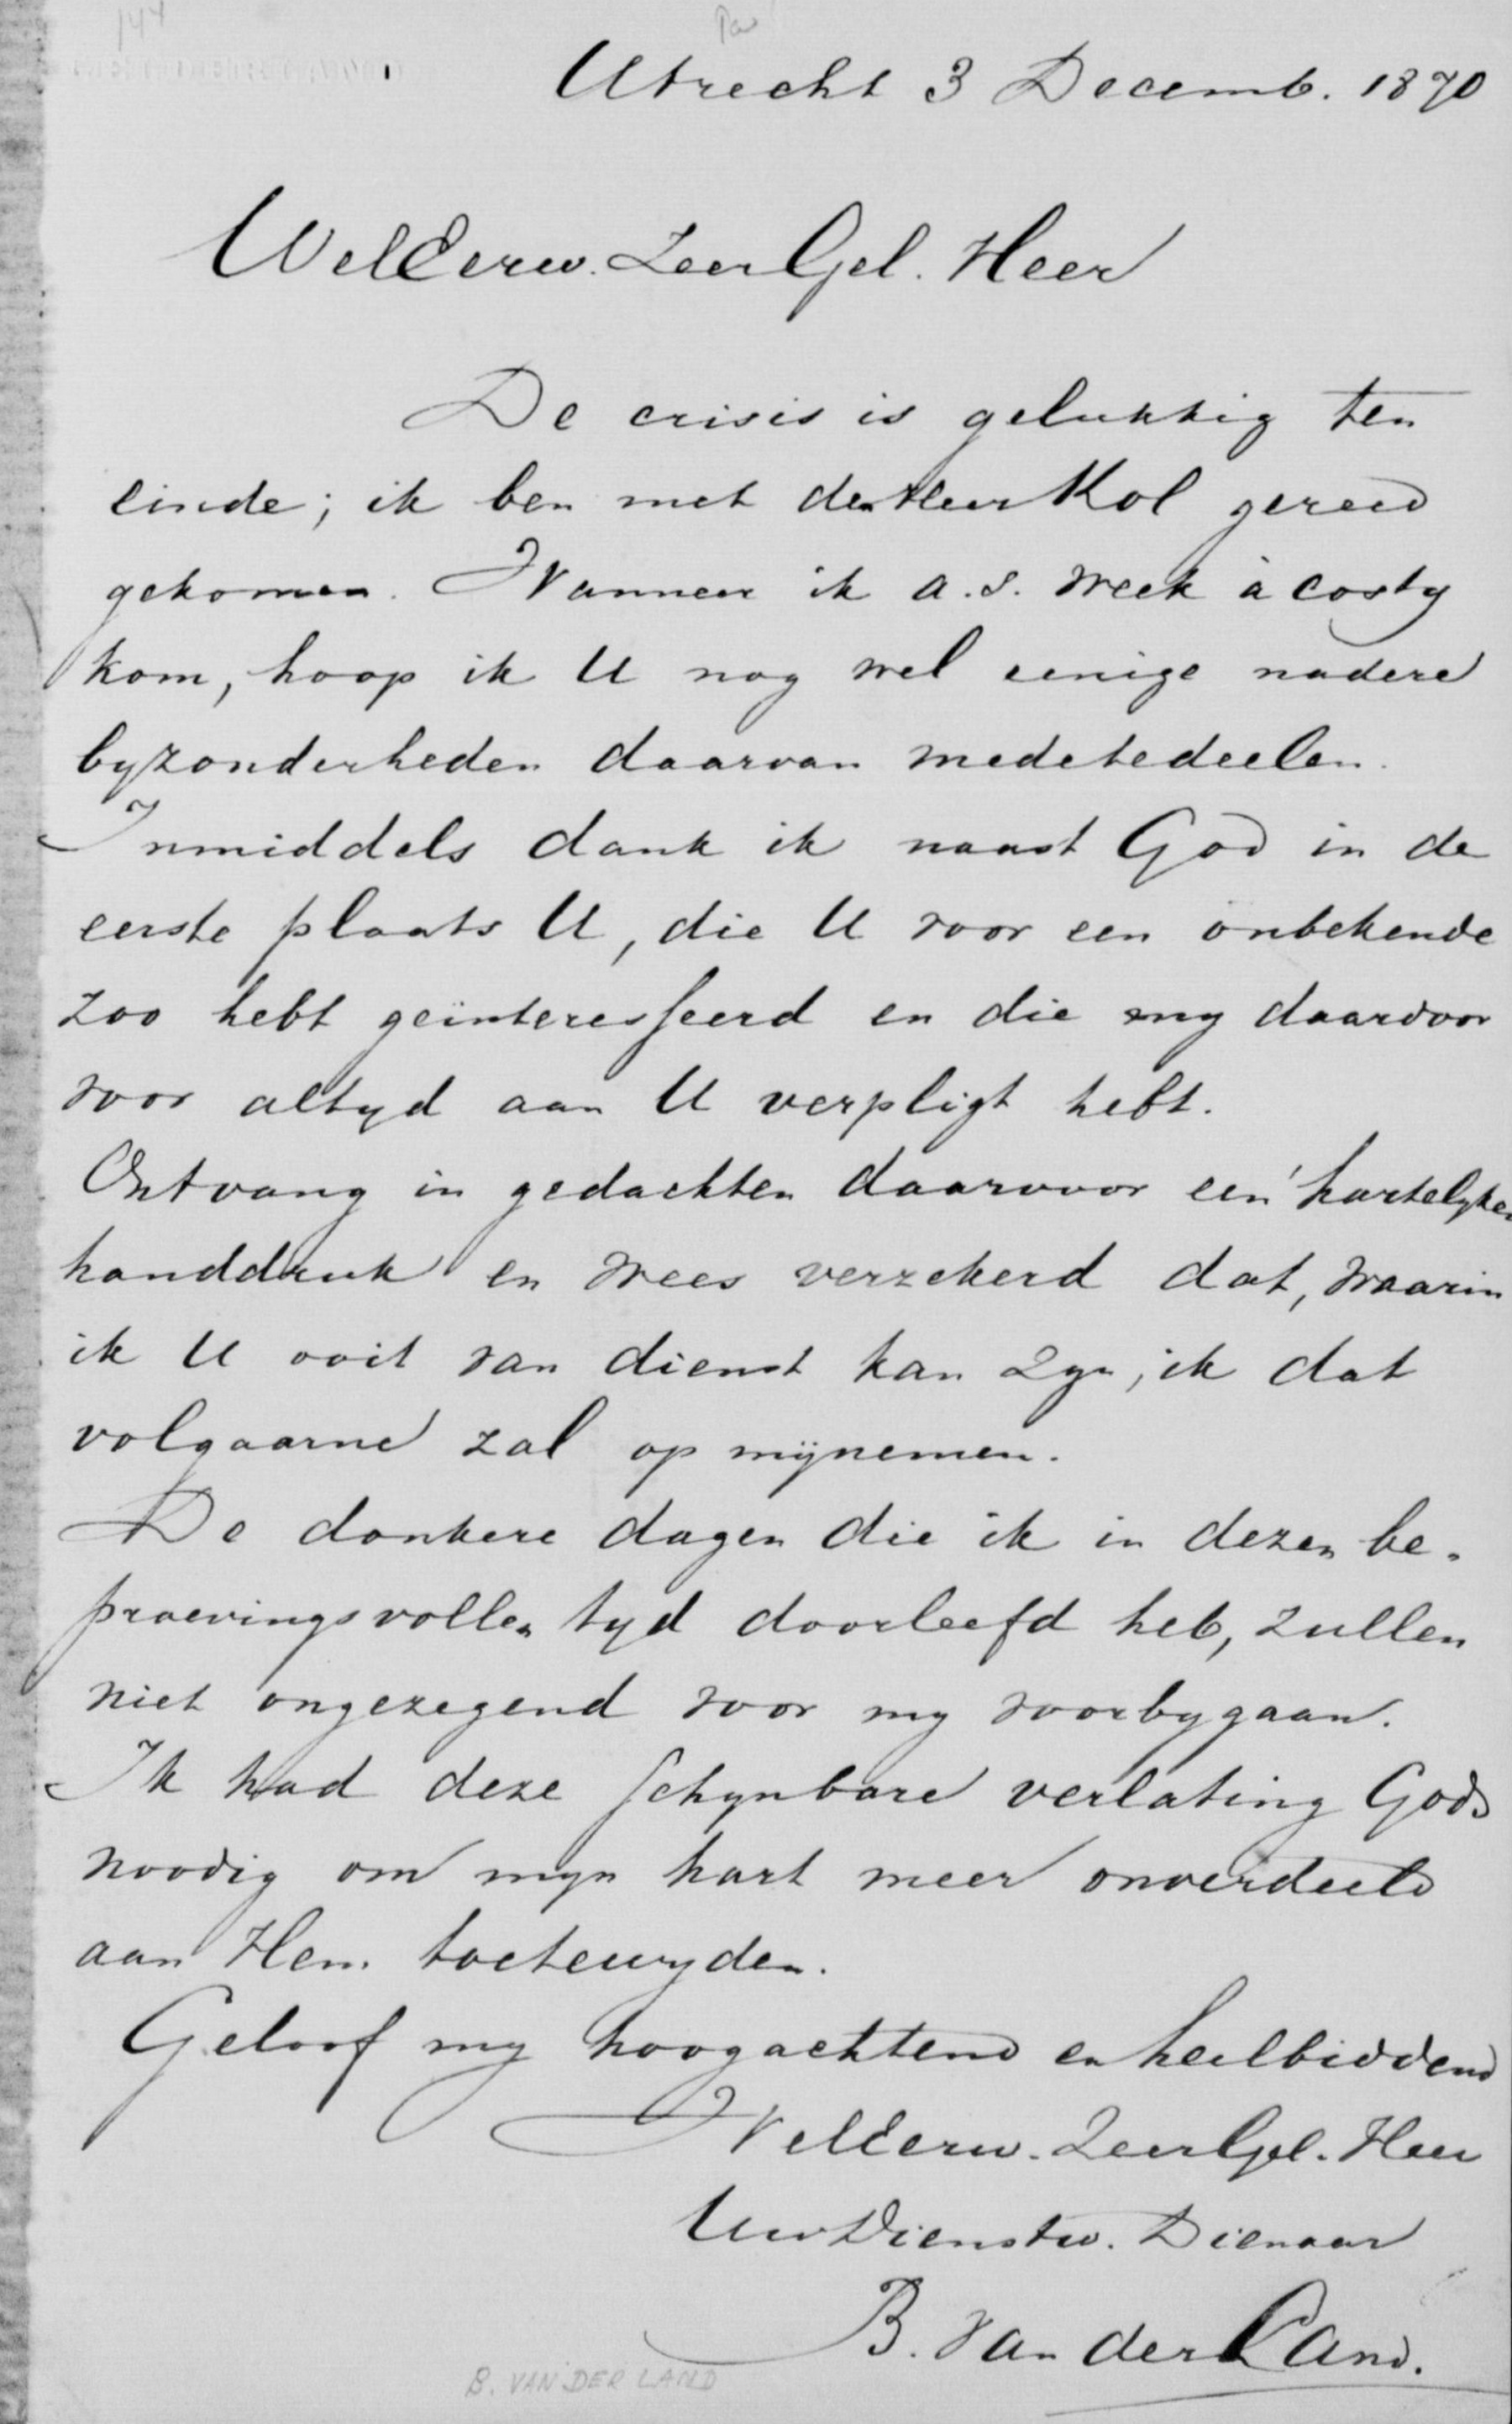 144
Utrecht 3 Decemb. 1870
WelEerw. ZeerGel. Heer
De crisis is gelukkig ten
einde; ik ben met den Heer Kol gereed
gekomen. Wanneer ik a.s. week à costy
kom, hoop ik U nog wel eenige nadere
byzonderheden daarvan medetedeelen.
Inmiddels dank ik naast God in de
eerste plaats U, die U voor een onbekende
zoo hebt geïnteresseerd en die my daardoor
voor altyd aan U verpligt hebt.
Ontvang in gedachten daarvoor een hartelyken
handdruk en wees verzekerd dat, waarin
ik U ooit van dienst kan zyn, ik dat
volgaarne zal op mijnemen.
De donkere dagen die ik in dezen be-
proevingsvollen tyd doorleefd heb, zullen
niet ongezegend voor my voorbygaan.
Ik had deze schynbare verlating Gods
noodig om myn hart meer onverdeeld
aan Hem toetewyden.
Geloof my hoogachtend en heilbiddend
WelEerw. ZeerGel. Heer
Uw Dienstw. Dienaar
B. van der Land.
B. VAN DER LAND